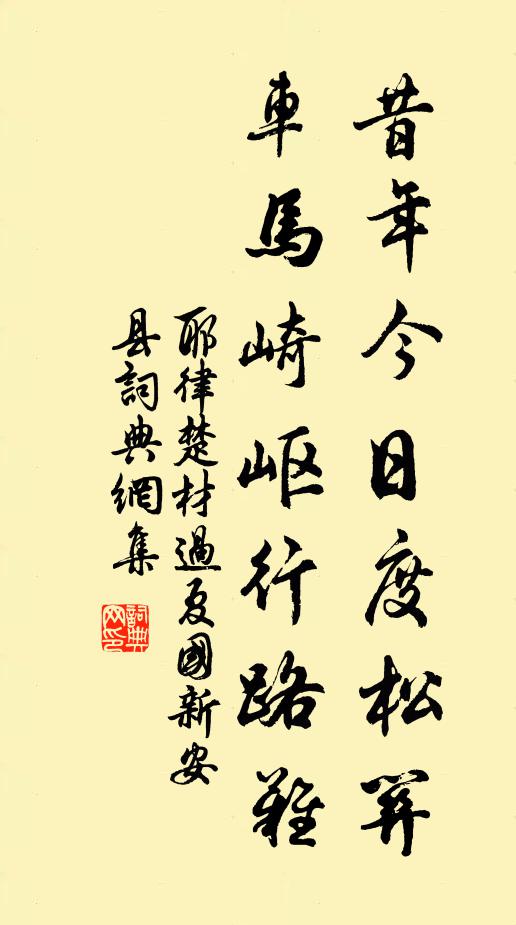 昔年今日度松關
車馬崎岖行路難
耶律楚材過夏國新安
县詞典網集
詞典网印